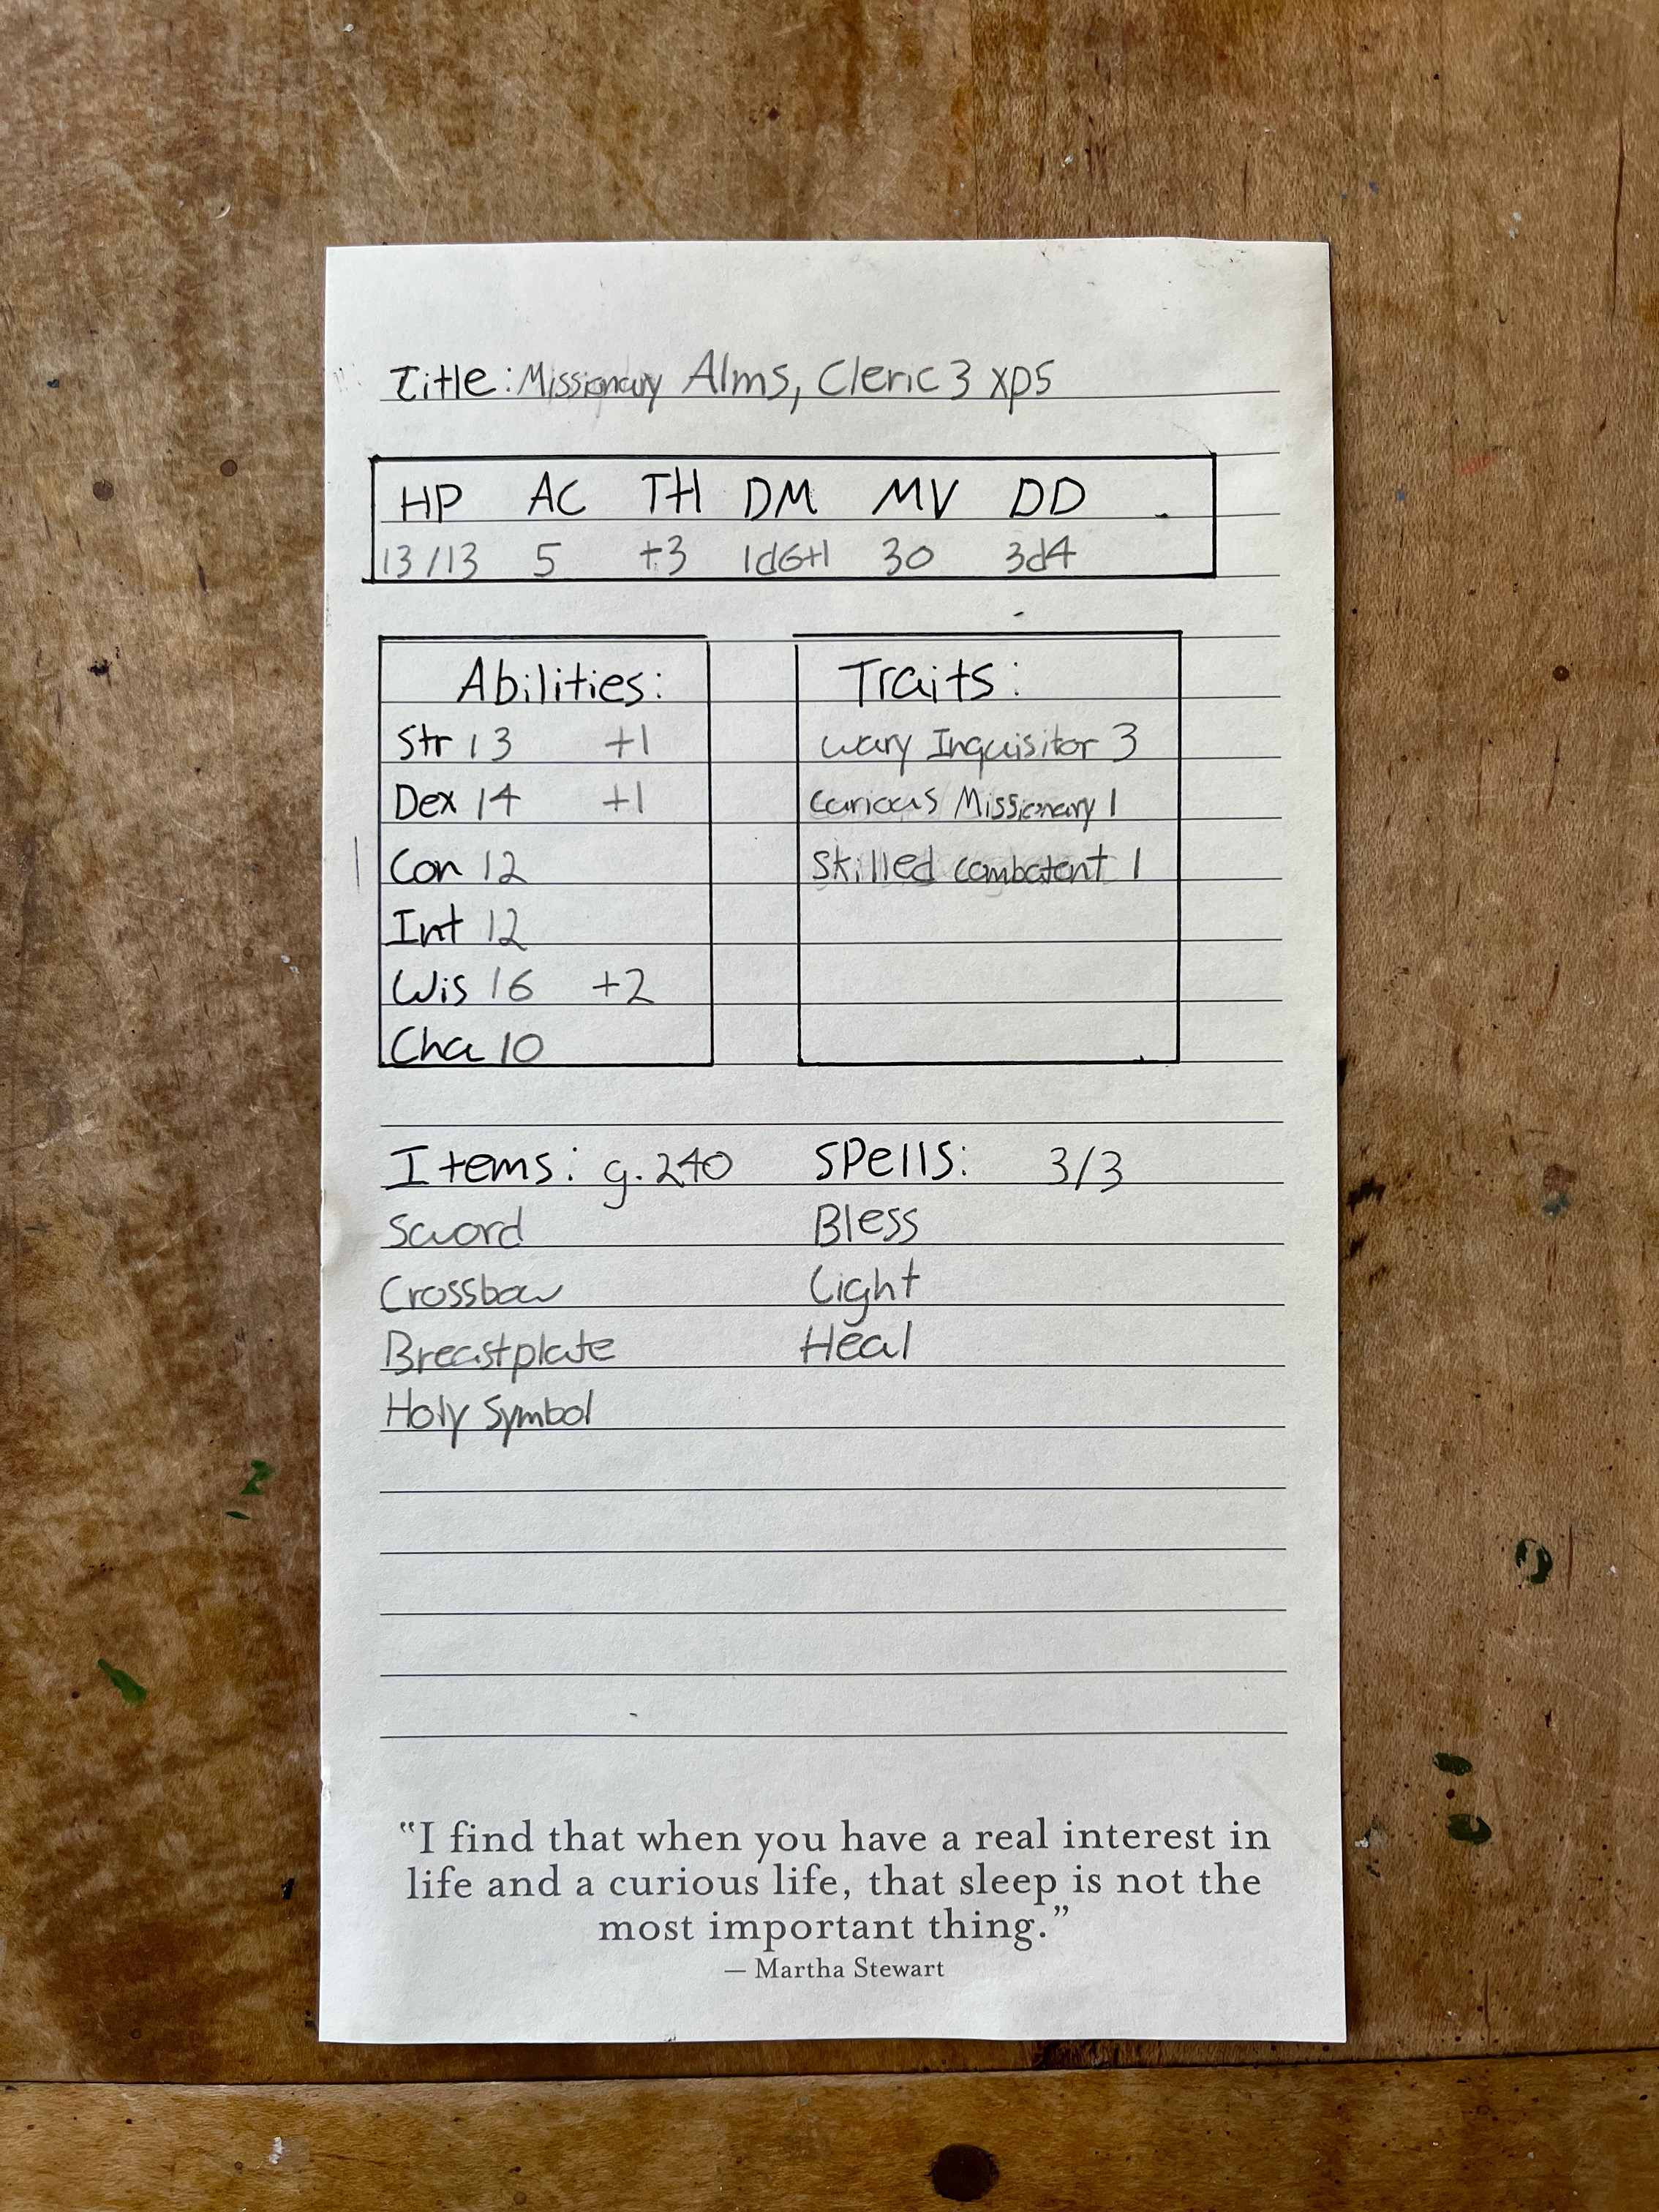 Title: Missionary Alms, Cleric 3 xp5
HP AC TH DM MV DD
13/13 5 +3 1d6+1 30 3d4
Abilities:
Str 13 +1
Dex 14 +1
Con 12
Int 12
Wis 16 +2
Cha 10
Traits:
wary Inquisitor 3
curious Missionary 1
skilled combatent 1
Items: g. 240
Sword
Crossbow
Breastplate
Holy Symbol
Spells: 3/3
Bless
Light
Heal
“I find that when you have a real interest in
life and a curious life, that sleep is not the
most important thing.”
— Martha Stewart